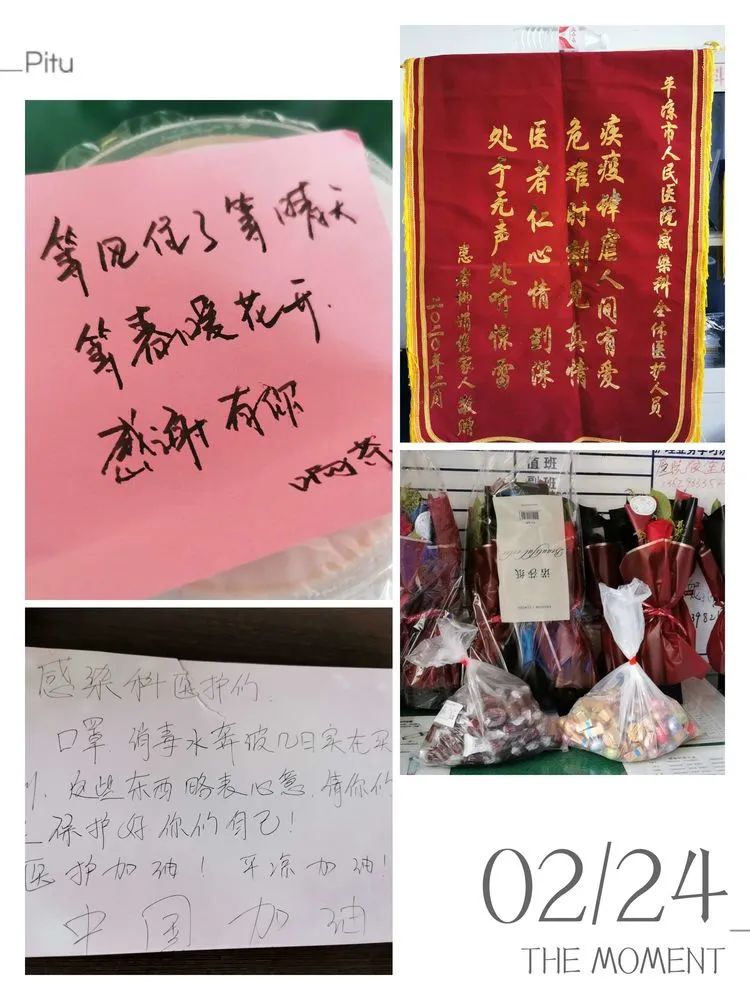 Pitu
等风住了等晴天
等春暖花开.
感谢有你
平凉市人民医院感染科全体医护人员
疾疫肆虐人间有爱
危难时刻见真情
医者仁心情到深
处于无声处听惊雷
患者柳娟携家人敬赠
二〇二〇年二月
值班
Beautiful
诺莎纸
感染科医护们.
口罩、消毒水奔波几日实在买
这些东西略表心意.请你们
保护好你们自己！
医护加油！平凉加油！
中国加油
02/24
THE MOMENT